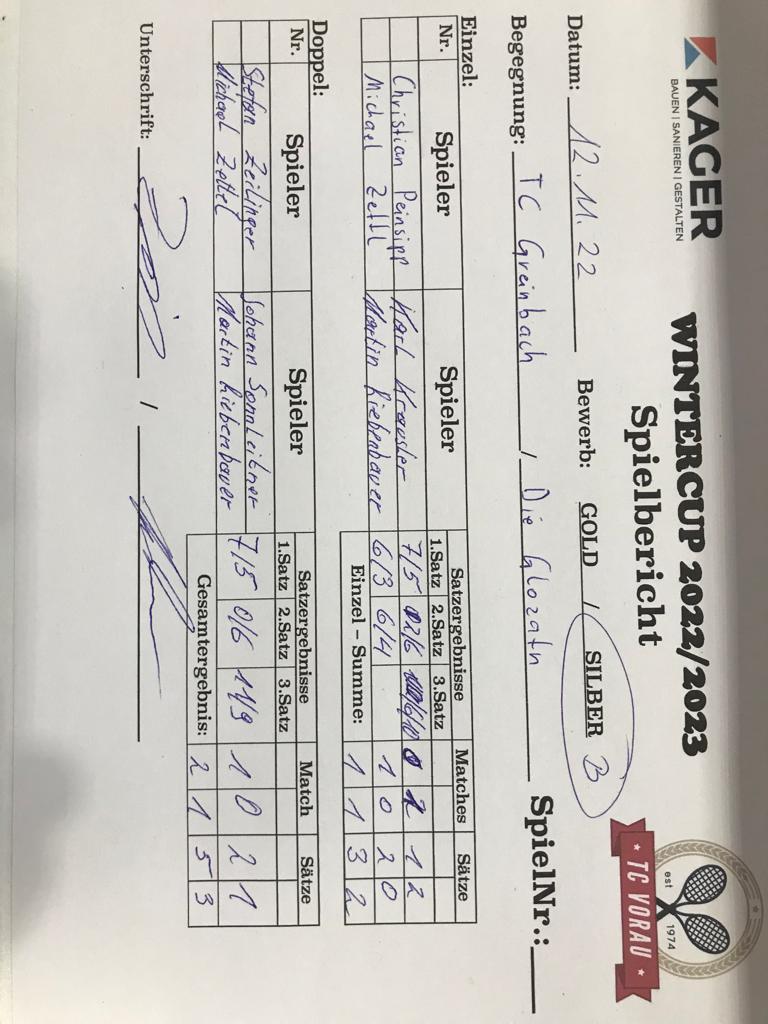 KAGER
BAUEN | SANIEREN | GESTALTEN
WINTERCUP 2022/2023
Spielbericht
est 1974
TC VORAU
Datum: 12.11.22 Bewerb: GOLD / SILBER B
Begegnung: TC Greinbach / Die Glozatn SpielNr.:
Einzel:
Nr. Spieler Spieler Satzergebnisse Matches Sätze
1.Satz 2.Satz 3.Satz
Christian Peinsipp Karl 7/5 2/6 6/10 0 1 1 2
Michael Zettl Martin Riebenbauer 6/3 6/4 1 0 2 0
Einzel – Summe: 1 1 3 2
Doppel:
Nr. Spieler Spieler Satzergebnisse Match Sätze
1.Satz 2.Satz 3.Satz
Stefan Zeilinger Johann Sonnleitner 7/5 0/6 11/9 1 0 2 1
Michael Zettl Martin Riebenbauer
Gesamtergebnis: 2 1 5 3
Unterschrift: /